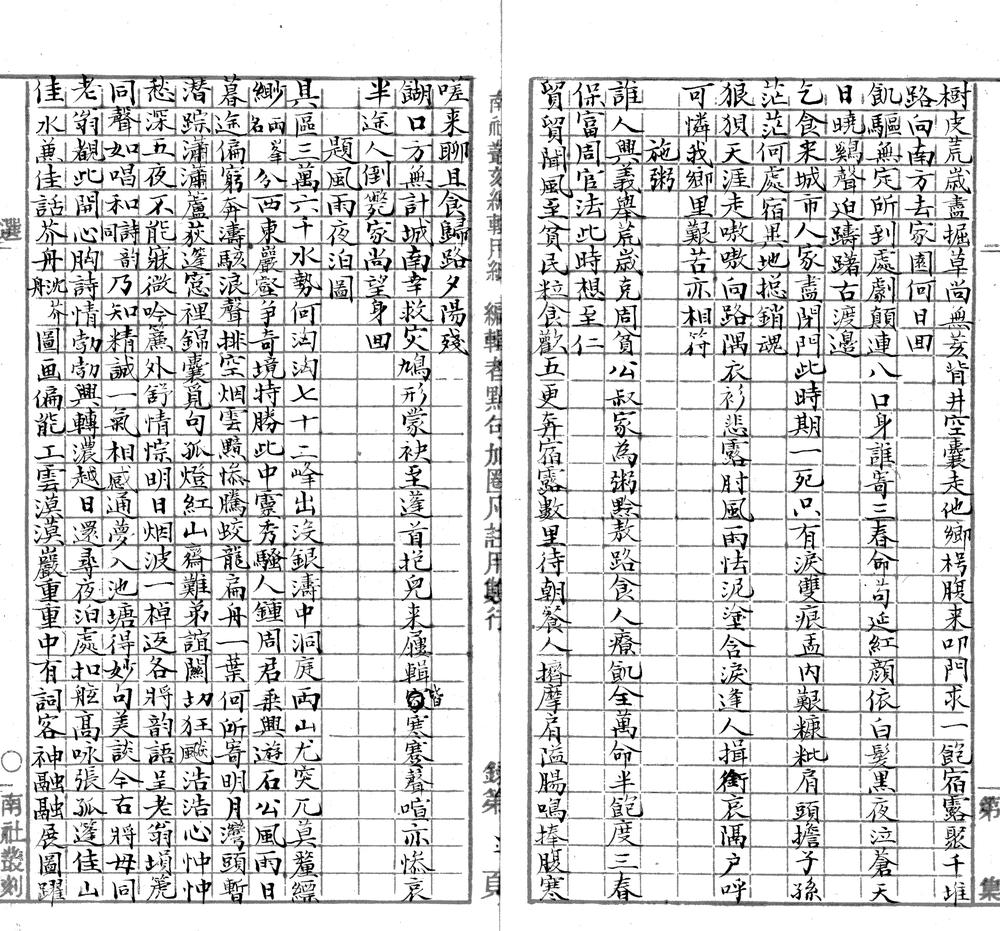 樹皮荒歲盡掘草尚無荄背井空囊走他鄉枵腹来叩門求一飽宿露聚千堆
路向南方去家園何日回
飢驅無定所到處劇顛連八口身誰寄三春命苟延紅顏依白髮黑夜泣蒼天
日曉鷄聲迫躊躇古渡邊
乞食来城市人家盡閉門此時期一死只有淚雙痕盂内艱糠粃肩頭擔子孫
茫茫何處宿黑地摠銷魂
狼狽天涯走嗷嗷向路隅衣衫悲露肘風雨怯泥塗含淚逢人揖銜哀隔户呼
可憐我鄉里艱苦亦相符
施粥
誰人興義舉荒歲克周貧公叔家為粥黔敖路食人療飢全萬命半飽度三春
保富周官法此時想至仁
貿貿聞風至貧民粒食歡五更奔宿露數里待朝餐人擠摩肩隘腸鳴捧腹寒
嗟来聊且食歸路夕陽殘
餬口方無計城南幸救灾鳩形蒙袂至蓬首抱兒来屨輯皆寒蹇聲喧亦慘哀
半途人倒斃家尚望身回
題風雨夜泊圖
具區三萬六千水勢何洶洶七十二峰出没銀濤中洞庭两山尤突兀莫釐縹
緲两峯名分西東巖壑争奇境特勝此中靈秀騷人鍾周君乘興遊石公風雨日
暮途偏窮奔濤駭浪聲排空烟雲黯慘騰蛟龍扁舟一葉何所寄明月灣頭暫
潜踪瀟瀟蘆荻篷窻裡錦囊覓句孤燈紅山齋難弟誼關切狂飈浩浩心忡忡
愁深五夜不能寐微吟簾外舒情悰明日烟波一棹返各將韵語呈老翁塤箎
同聲如唱和詩韵同乃知精誠一氣相感通夢入池塘得妙句美談今古將毋同
老翁覩此開心胸詩情勃勃興轉濃越日還尋夜泊處扣舷高咏張孤篷佳山
佳水兼佳話芥舟沈芥舟圖画偏能工雲漠漠巖重重中有詞客神融融展圖躍
二
第 集
南社叢刻
選